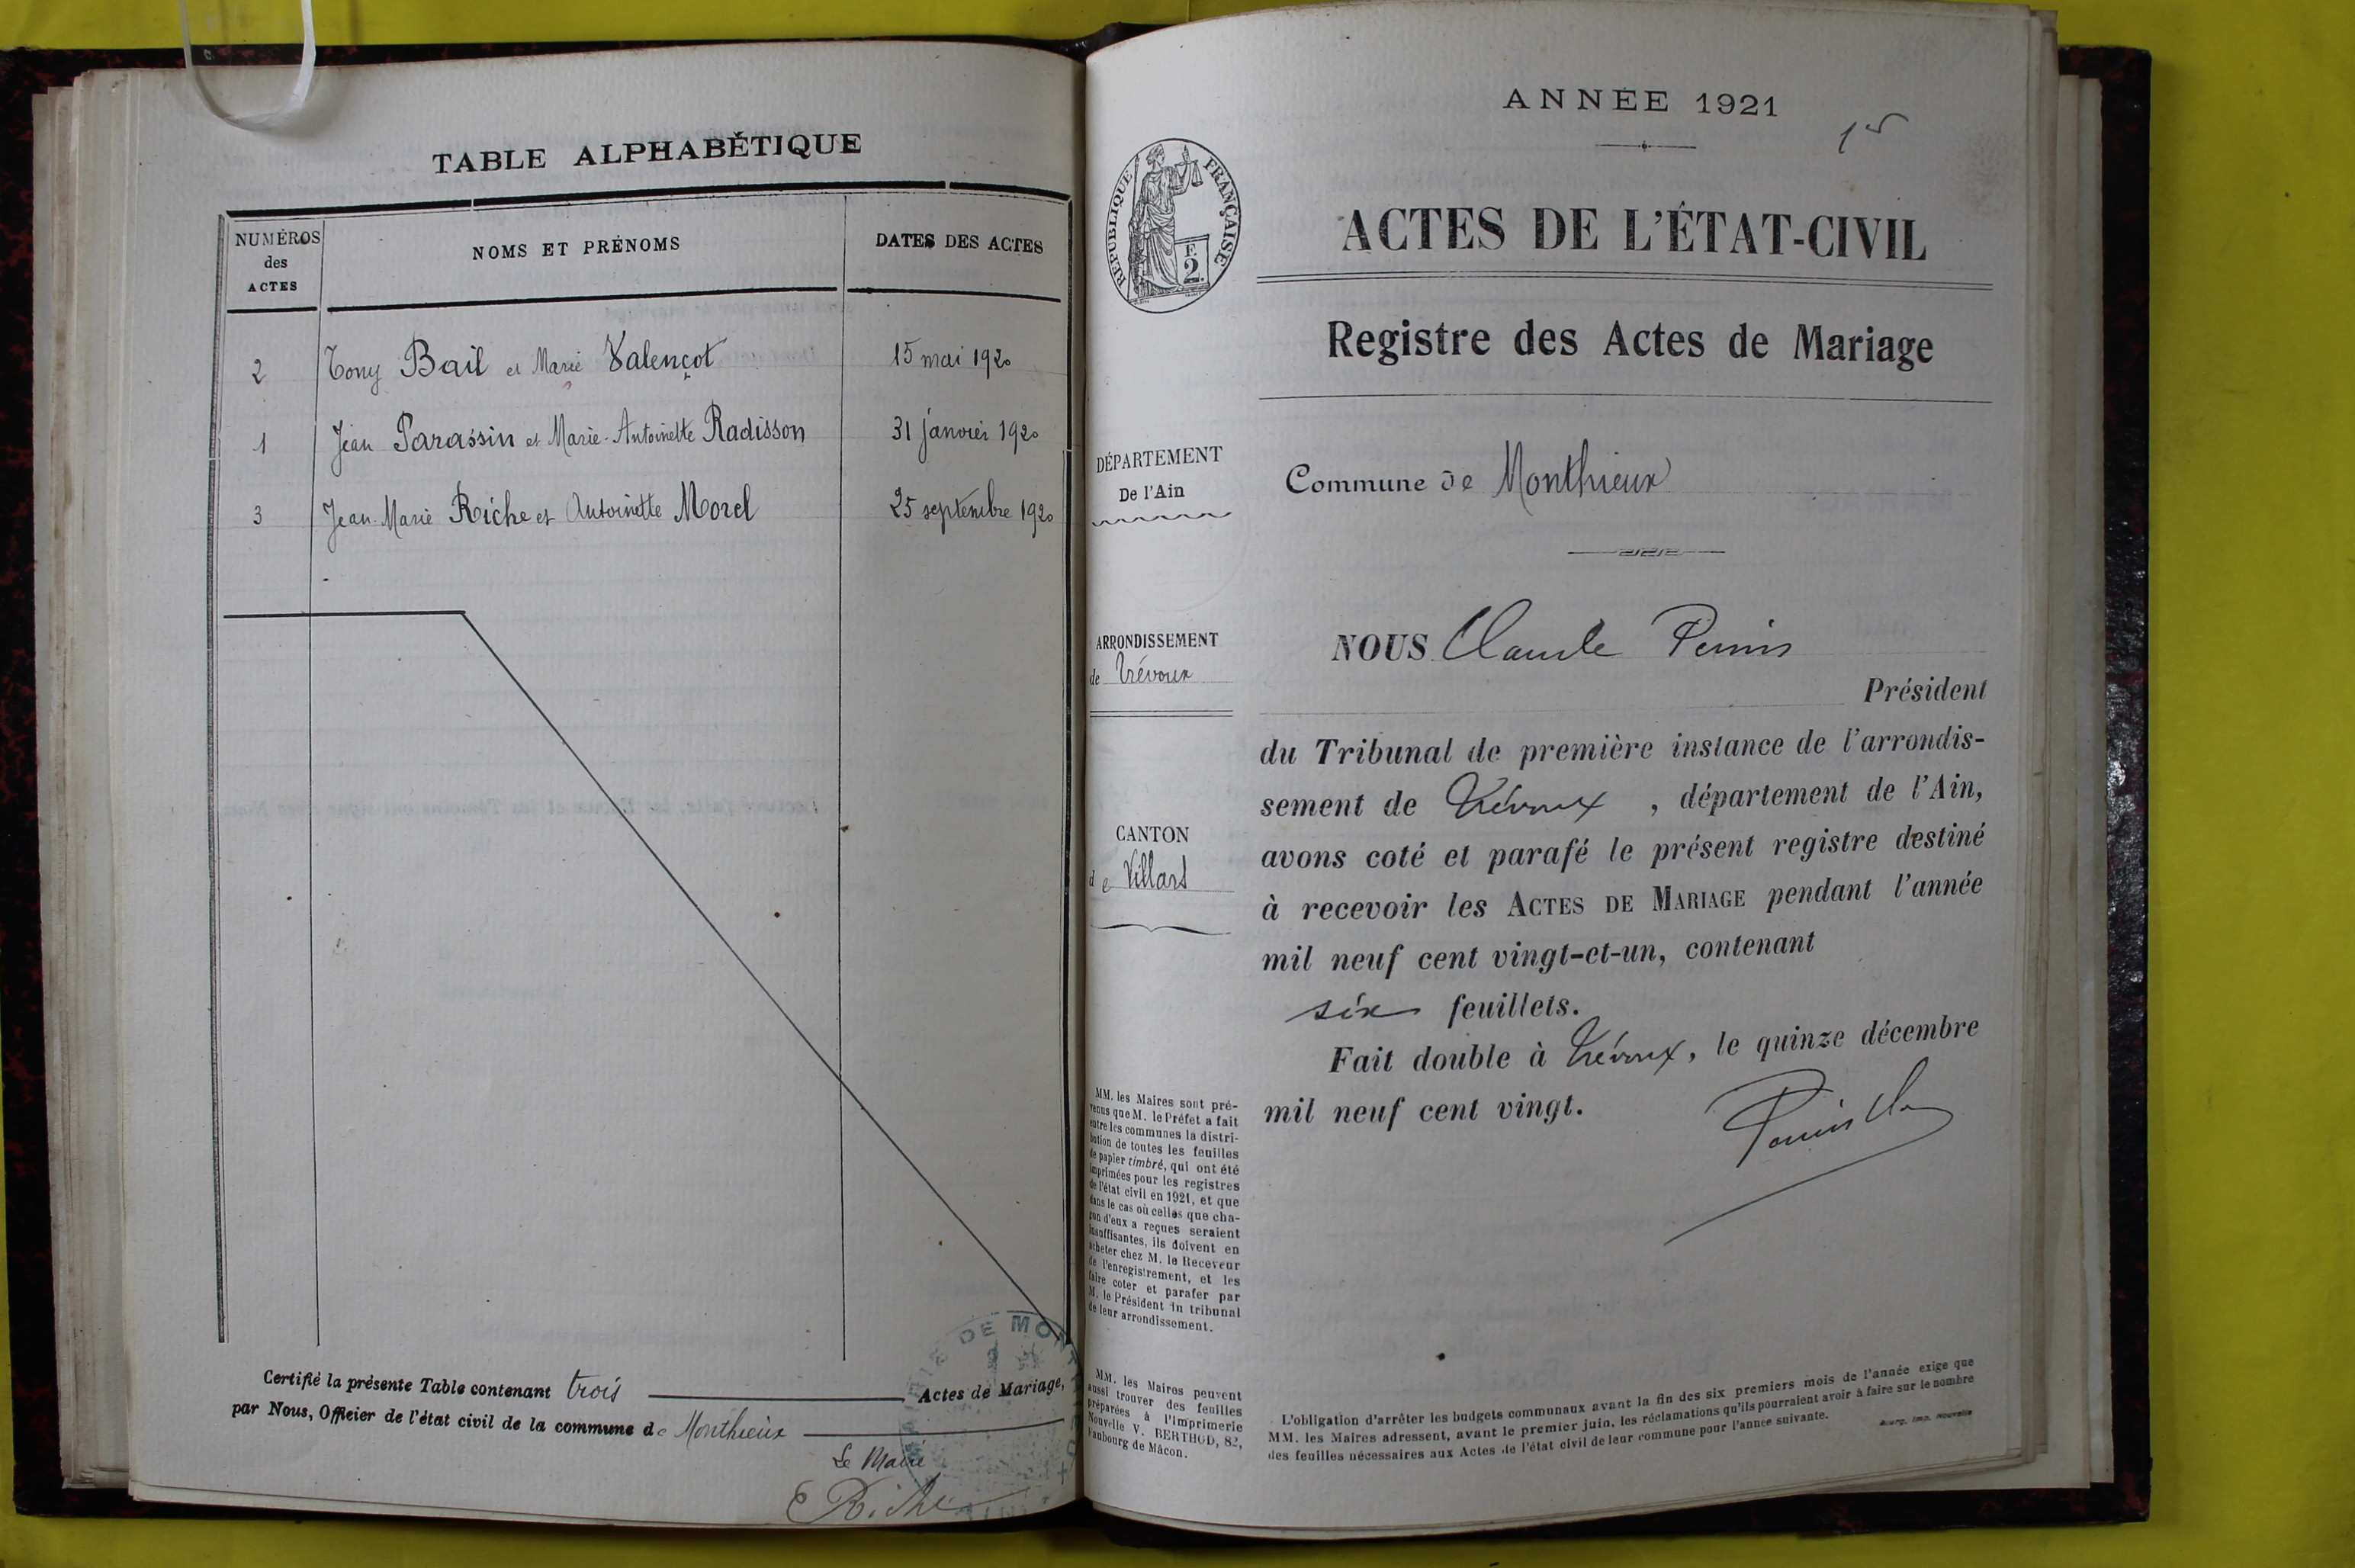 TABLE ALPHABÉTIQUE
NUMÉROS
des
ACTES
NOMS ET PRÉNOMS
DATES DES ACTES
2 Tony Bail et Marie Valençot 15 mai 1920
1 Jean Parassin et Marie-Antoinette Radisson 31 janvier 1920
3 Jean-Marie Riche et Antoinette Morel 25 septembre 1920
Certifié la présente Table contenant trois Actes de Mariage,
par Nous, Officier de l'état civil de la commune de Monthieux
Le Maire
E Riche
ANNÉE 1921
15
RÉPUBLIQUE FRANÇAISE
F.
2.
ACTES DE L'ÉTAT-CIVIL
Registre des Actes de Mariage
DÉPARTEMENT
De l'Ain
Commune de Monthieux
ARRONDISSEMENT
de Trévoux
CANTON
de Villars
NOUS Claude
Président
du Tribunal de première instance de l'arrondis-
sement de Trévoux, département de l'Ain,
avons coté et parafé le présent registre destiné
à recevoir les ACTES DE MARIAGE pendant l'année
mil neuf cent vingt-et-un, contenant
six feuillets.
Fait double à Trévoux, le quinze décembre
mil neuf cent vingt.
MM. les Maires sont pré-
venus que M. le Préfet a fait
entre les communes la distri-
bution de toutes les feuilles
de papier timbré, qui ont été
imprimées pour les registres
de l'état civil en 1921, et que
dans le cas où celles que cha-
cun d'eux a reçues seraient
insuffisantes, ils doivent en
acheter chez M. le Receveur
de l'enregistrement, et les
faire coter et parafer par
M. le Président du tribunal
de leur arrondissement.
MM. les Maires peuvent
aussi trouver des feuilles
préparées à l'Imprimerie
Nouvelle V. BERTHOD, 82,
Faubourg de Mâcon.
L'obligation d'arrêter les budgets communaux avant la fin des six premiers mois de l'année exige que
MM. les Maires adressent, avant le premier juin, les réclamations qu'ils pourraient avoir à faire sur le nombre
des feuilles nécessaires aux Actes de l'état civil de leur commune pour l'année suivante.
Bourg, Imp. Nouvelle